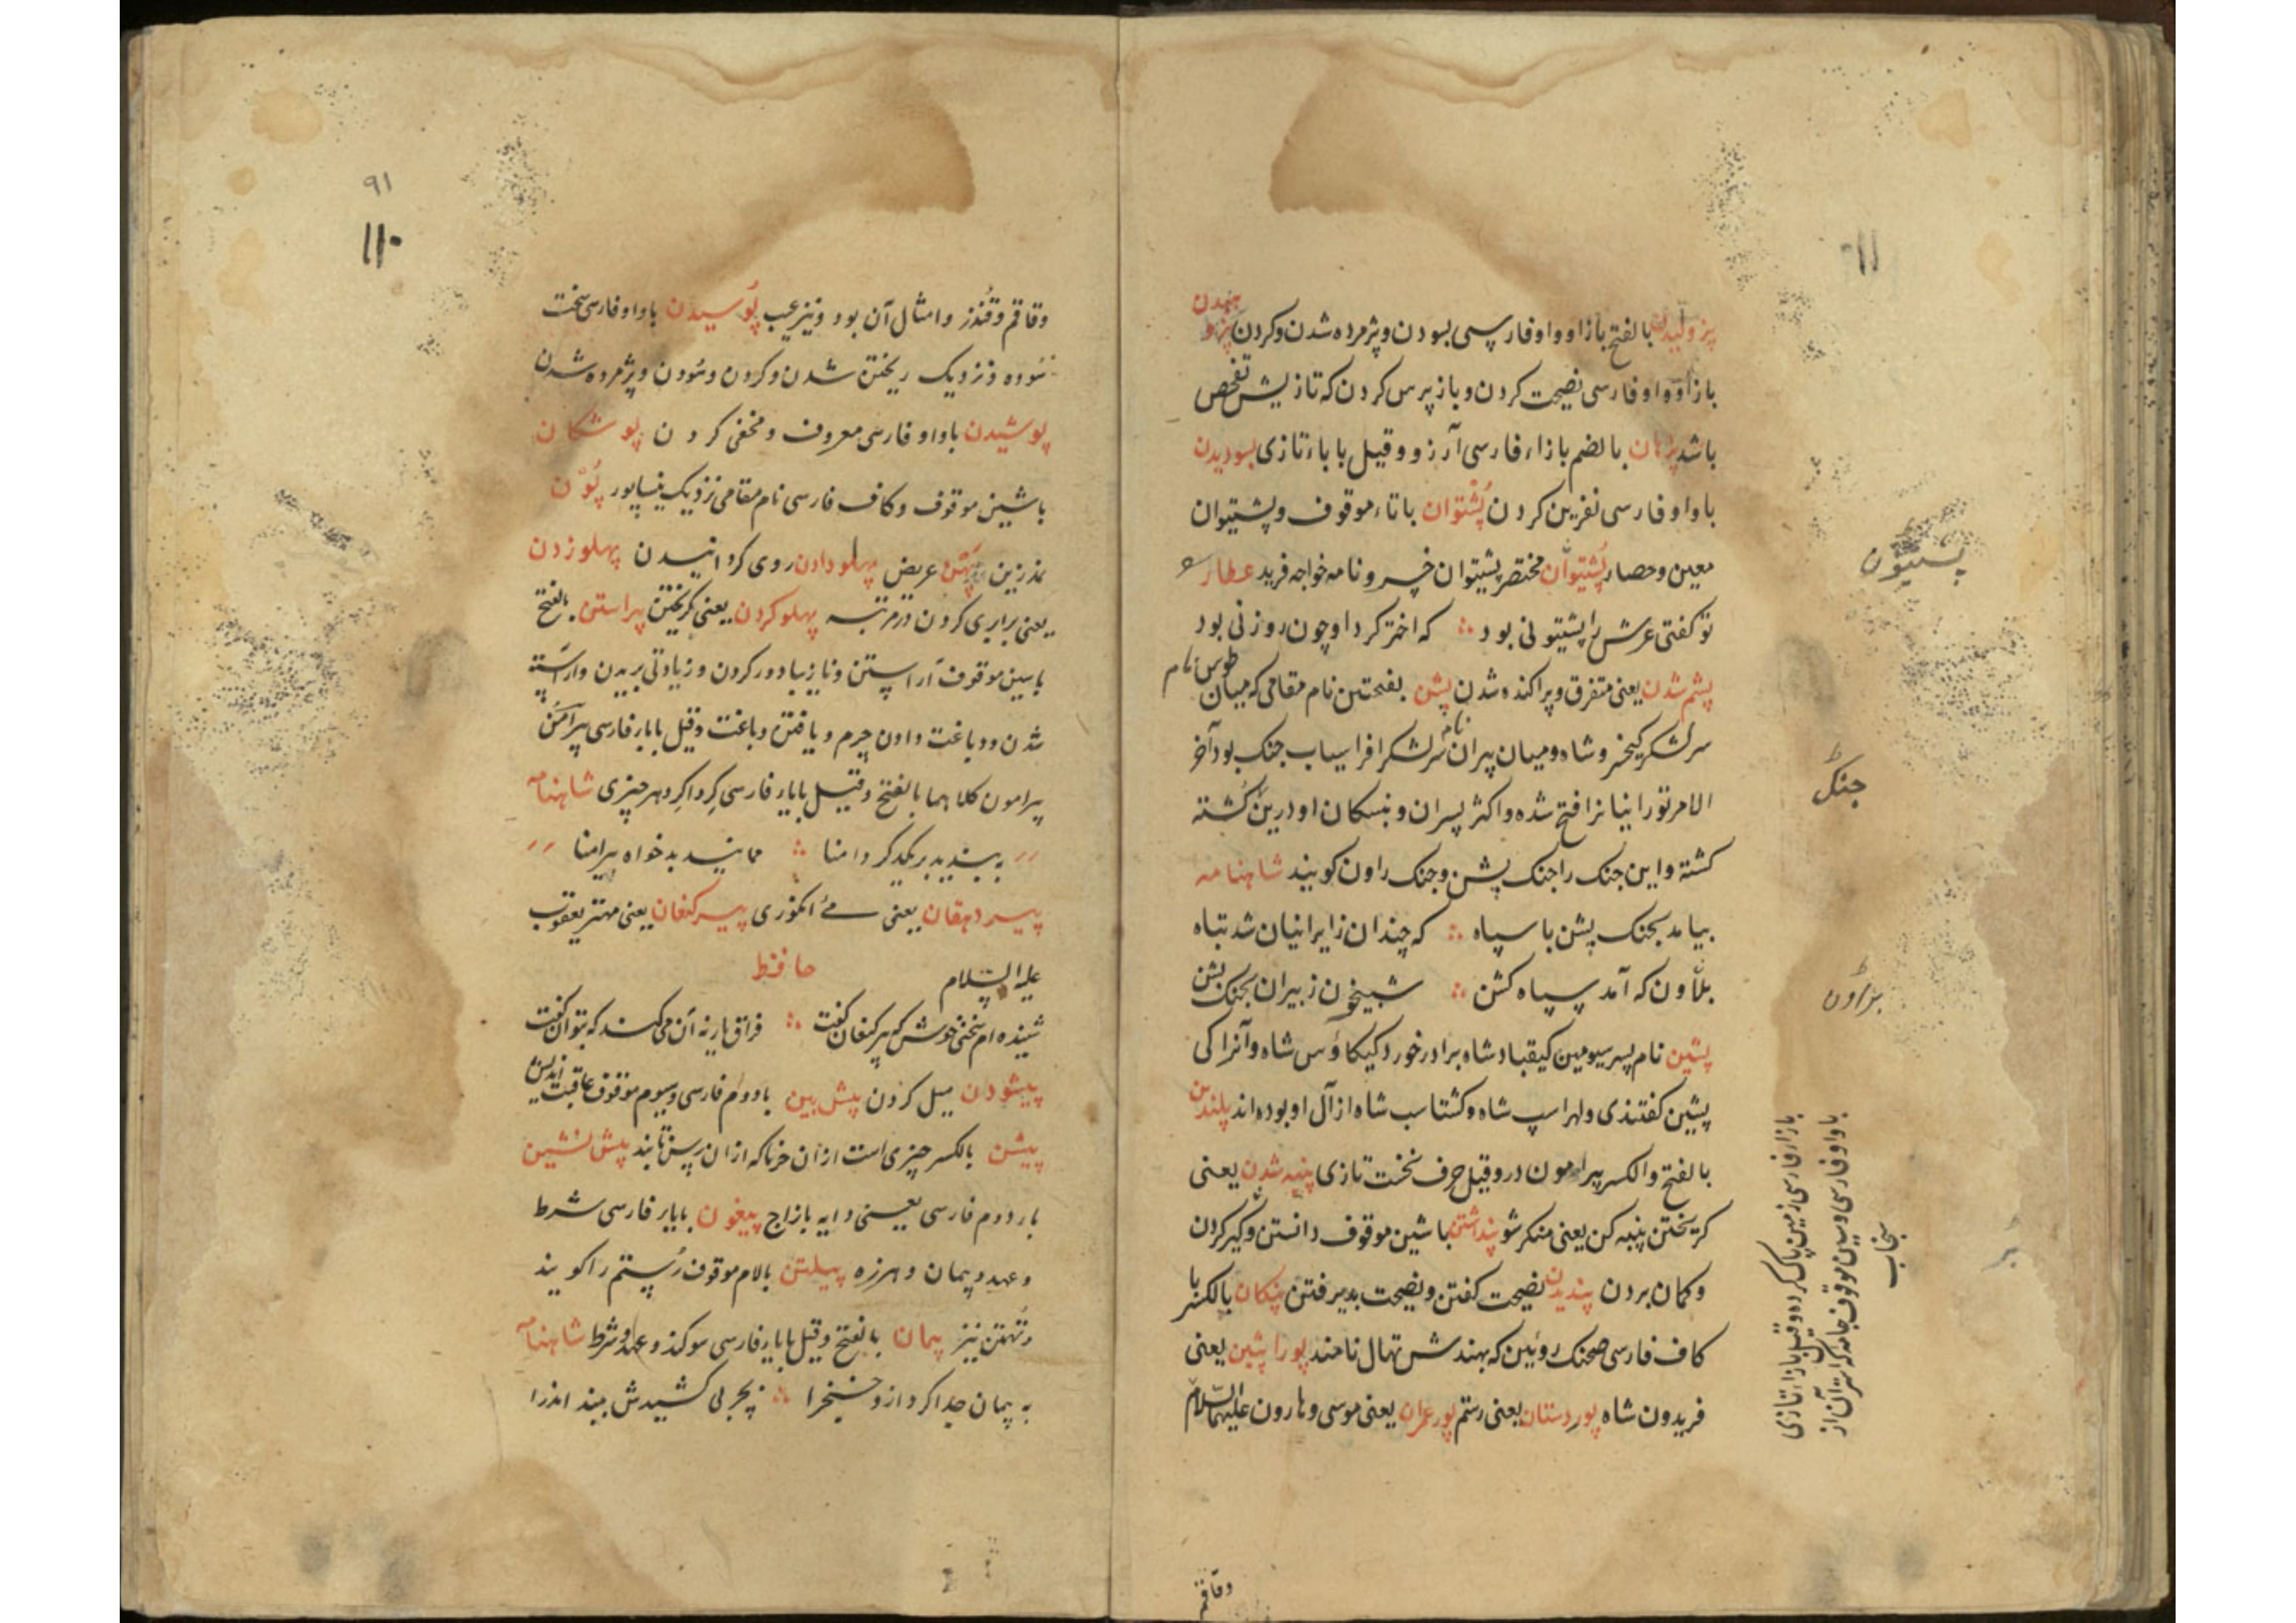 پژولیدن بالفتح بازا و واو فارسی بسودن و پژمرده شدن و کردن پژوهیدن
بازا و واو فارسی نصیحت کردن و باز پرس کردن که تازیش تفحص
باشد پژهان بالضم بازاء فارسی آرزو و قیل با باء تازی بسودیدن
باواو فارسی نفرین کردن پُشتوان باتاء موقوف و پشتیوان
معین و حصار پُشتیوان مختصر پشتیوان خسرو نامه خواجه فرید عطار
تو کفتی عرش را پشتیونی بود که اختر کرد او چون روزنی بود
پشم شدن یعنی متفرق و پراکنده شدن پشن بفتحتین نام مقامی که میان طوس نام
سرلشکر کیخسرو شاه و میان پیران نام سرلشکر افراسیاب جنک بود آخر
الامر تورانیانرا فتح شده و اکثر پسران و نبسکان او درین کُشته
کشته و این جنک را جنک پشن و جنک راون کویند شاهنامه
بیامد بجنک پشن با سپاه که چندان ز ایرانیان شد تباه
بلاون که آمد سپاه کشن شبیخون ز پیران بجنک پشن
پشین نام پسر سیومین کیقباد شاه برادر خورد کیکاؤس شاه و آنرا کی
پشین کفتندی ولهراسپ شاه و کشتاسب شاه از آل او بوده اند پلندین
بالفتح والکسر پیرامون در و قیل حرف نخست تازی پنبه شدن یعنی
کریختن پنبه کن یعنی منکر شو پنداشتن باشین موقوف دانستن و کیر کردن
و کمان بردن پندیدن نصیحت کفتن و نصیحت پذیرفتن پنکان بالکسر با
کاف فارسی صحنک رویین که بهندش تهال نامند پور اتبین یعنی
فریدون شاه پور دستان یعنی رستم پور عمران یعنی موسی و هارون علیهماالسلام
پستیون
جنک
بزاون
بازاء فارسی زمین پاک کرده و قیل بازاء تازی
باواو فارسی و سین موقوف جامه که استر آن از
سنجاب
بر
وقاقم
۹۱
۱۱۰
وقاقم و قُندز و امثال آن بود و نیز عیب پوسیدن باواو فارسی سخت
سُوده و نزدیک ریختن شدن و کردن و سُودن و پژمرده شدن
پوشیدن باواو فارسی معروف و مخفی کردن پوشکان
باشین موقوف و کاف فارسی نام مقامی نزدیک نیساپور پُون
نمدزین پهن عریض پهلو دادن روی کردانیدن پهلو زدن
یعنی برابری کردن در مرتبه پهلو کردن یعنی کریختن پیراستن بالفتح
باسین موقوف آراستن و نازیبا دور کردن و زیادتی بریدن و آراسته
شدن و دباغت دادن چرم و یافتن دباغت و قیل بایاء فارسی پیرامن
پیرامون کلاهما بالفتح و قیل بایاء فارسی کِرداکِرد هر چیزی شاهنامه
به بندید بر یکدکر دامنا ممانید بدخواه پیرامنا
پیر دهقان یعنی مئ انکوری پیر کنعان یعنی مهتر یعقوب
علیه السلام حافظ
شنیده ام سخنی خوش که پیر کنعان کفت فراق یار نه آن می کند که بتوان کفت
پیشودن میل کردن پیش بین بادوم فارسی و سیوم موقوف عاقبت اندیش
پیشن بالکسر چیزی است از آن خرما که از آن ریسن تابند پیش نشین
بار دوم فارسی یعنی دایه بازاج پیغون بایاء فارسی شرط
و عهد و پیمان و هرزه پیلتن بالام موقوف رُستم را کویند
و تُهمتن نیز پیمان بالفتح و قیل بایاء فارسی سوکند و عهد و شرط شاهنامه
به پیمان جدا کرد ازو خنجرا بچربی کشیدش ببند اندرا